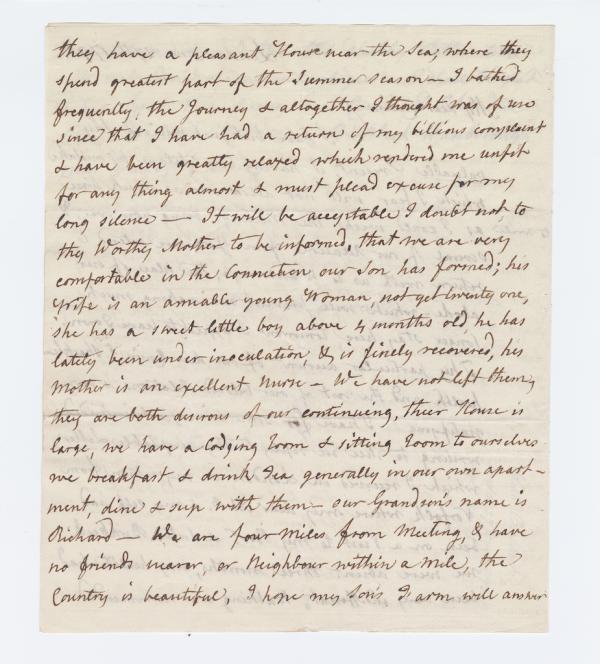 they have a pleasant House near the Sea, where they
spend greatest part of the Summer season — I bathed
frequently, the Journey & altogether I thought was of use
since that I have had a return of my billious complaint
& have been greatly relaxed which rendered me unfit
for any thing almost & must plead excuse for my
long silence — It will be acceptable I doubt not to
thy Worthy Mother to be informed, that we are very
comfortable in the Connection our Son has formed; his
Wife is an amiable young Woman, not yet twenty one,
she has a sweet little boy above 4 months old, he has
lately been under inoculation, & is finely recovered, his
Mother is an excellent Nurse — We have not left them,
they are both disirous of our continuing, their House is
large, we have a lodging room & sitting room to ourselves
we breakfast & drink Tea generally in our own apart-
ment, dine & sup with them — our Grandson's name is
Richard — We are four Miles from Meeting, & have
no friends nearer, or Neighbour within a Mile, the
Country is beautiful, I hope my Sons Farm will answer